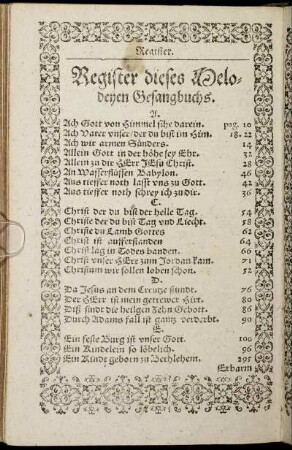 Register.
Register dieses Melo-
deyen Gesangbuchs.
A.
Ach Gott von Himmel sihe darein. pag. 10
Ach Vater vnser / der du bist im Him. 18. 22
Ach wir armen Sünders. 14
Allein Gott in der höhe sey Ehr. 32
Allein zu dir HErr JEsu Christ. 28
An Wasserflüssen Babylon. 46
Aus tieffer noth lasst vns zu Gott. 42
Aus tieffer noth schrey ich zu dir. 36
C.
Christ der du bist der helle Tag. 54
Christe der du bist Tag vnd Liecht. 58
Christe du Lamb Gottes 62
Christ ist aufferstanden 64
Christ lag in Todes banden. 66
Christ vnser HErr zum Jordan kam. 71
Christum wir sollen loben schon. 52
D.
Da Jesus an dem Creutze stundt. 76
Der HErr ist mein getrewer Hirt. 80
Diß sind die heilgen Zehn Gebott. 86
Durch Adams fall ist gantz verderbt. 90
E.
Ein feste Burg ist vnser Gott. 100
Ein Kindelein so löbelich. 96
Ein Kindt geborn zu Bethlehem. 291
Erbarm